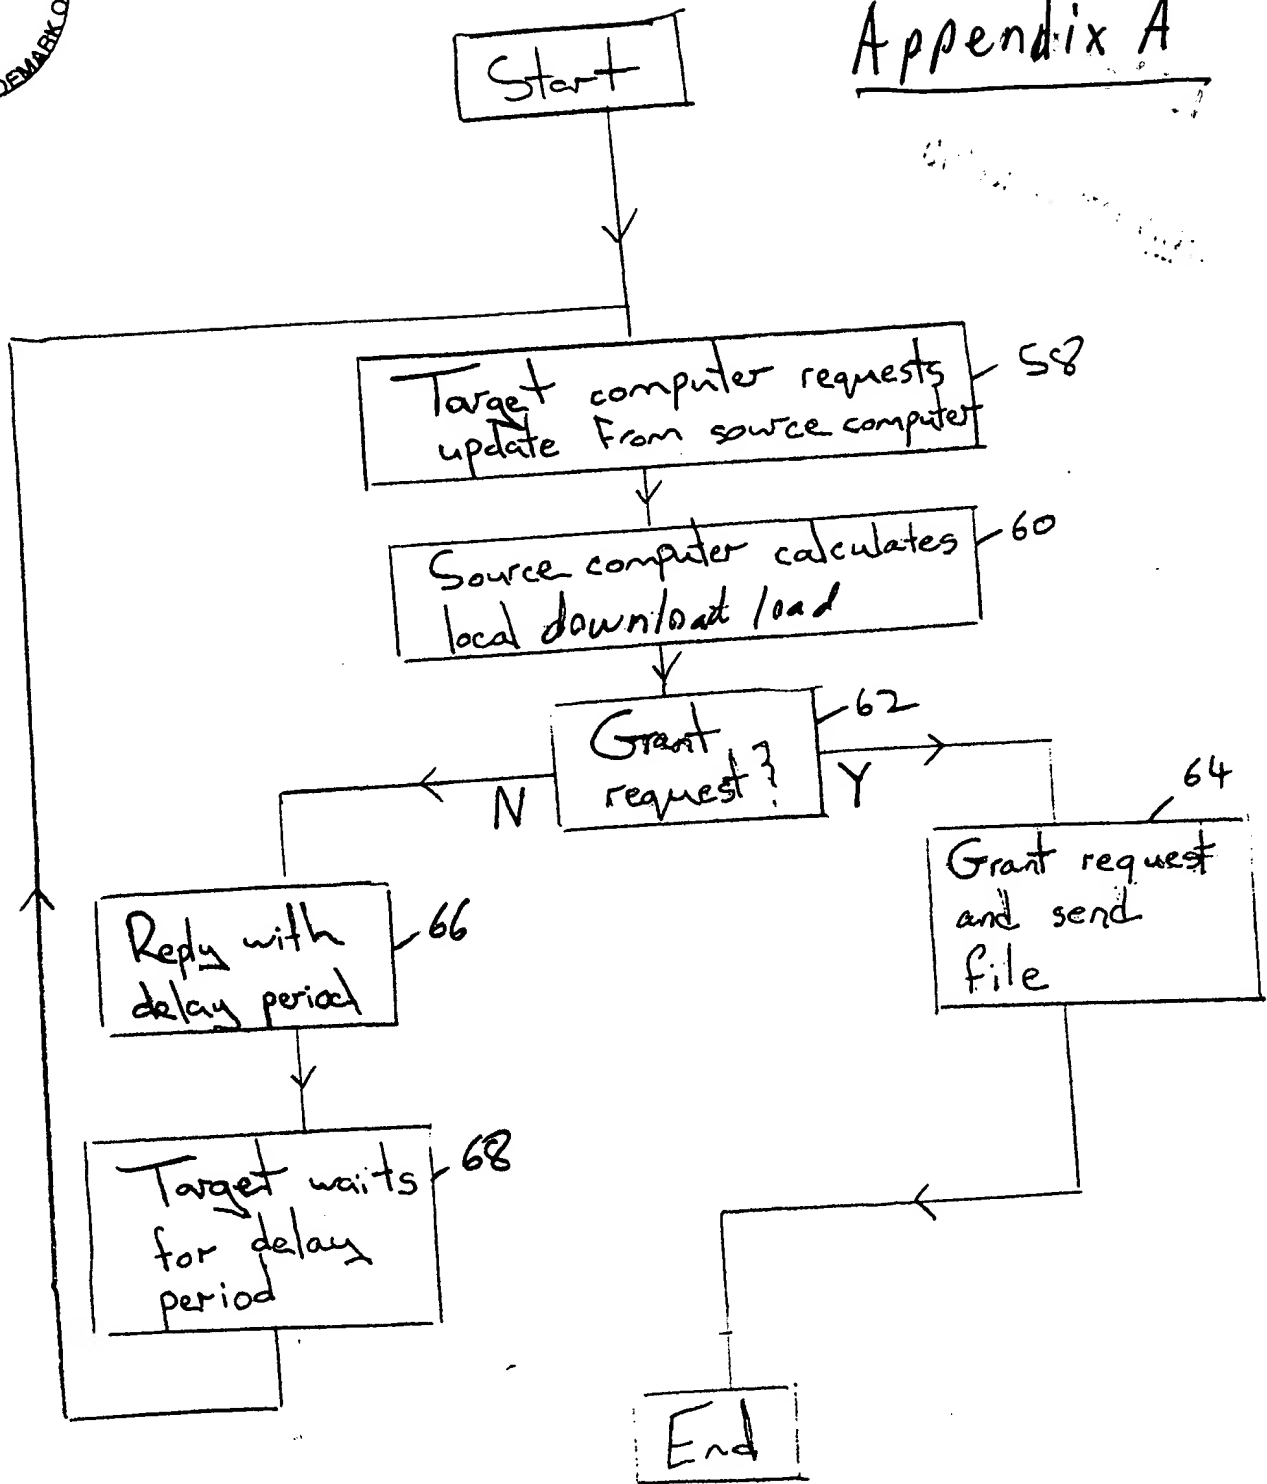 DEMARK O
Appendix A
Start
Target computer requests
update from source computer
58
Source computer calculates
local download load
60
Grant
request?
62
N
Y
64
Grant request
and send
file
Reply with
delay period
66
Target waits
for delay
period
68
End